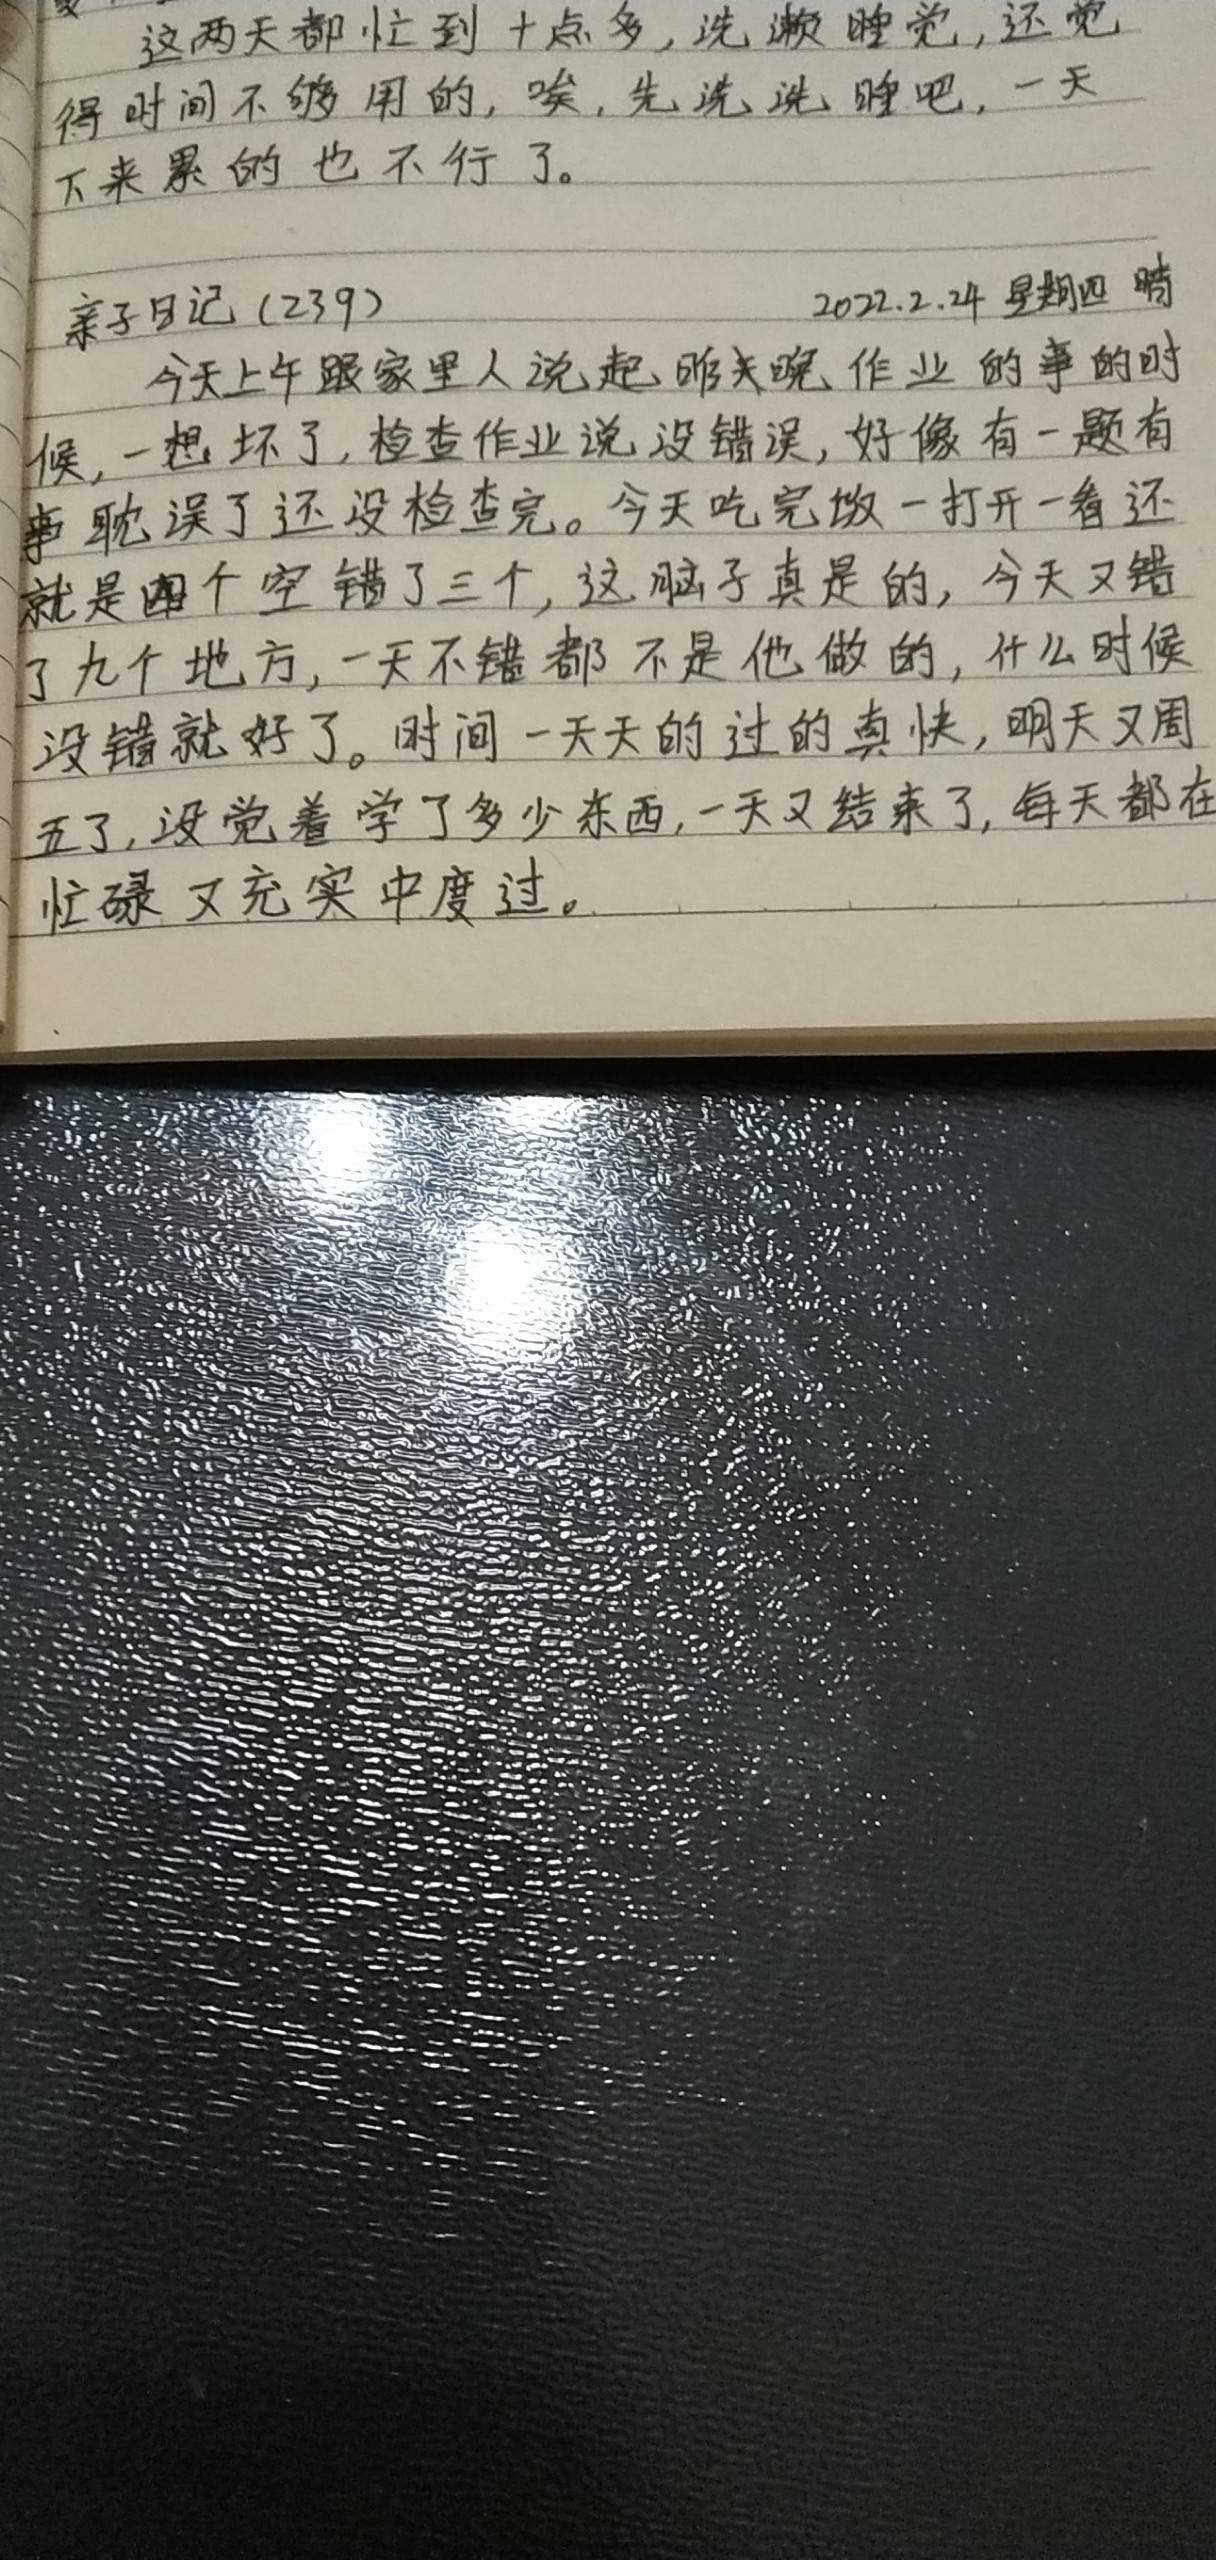 这两天都忙到十点多,洗濑睡觉,还觉
得时间不够用的,唉,先洗洗睡吧,一天
下来累的也不行了。
亲子日记(239) 2022.2.24 星期四 晴
今天上午跟家里人说起昨天晚作业的事的时
候,一想坏了,检查作业说没错误,好像有一题有
事耽误了还没检查完。今天吃完饭一打开一看还
就是四个空错了三个,这脑子真是的,今天又错
了九个地方,一天不错都不是他做的,什么时候
没错就好了。时间一天天的过的真快,明天又周
五了,没觉着学了多少东西,一天又结束了,每天都在
忙碌又充实中度过。